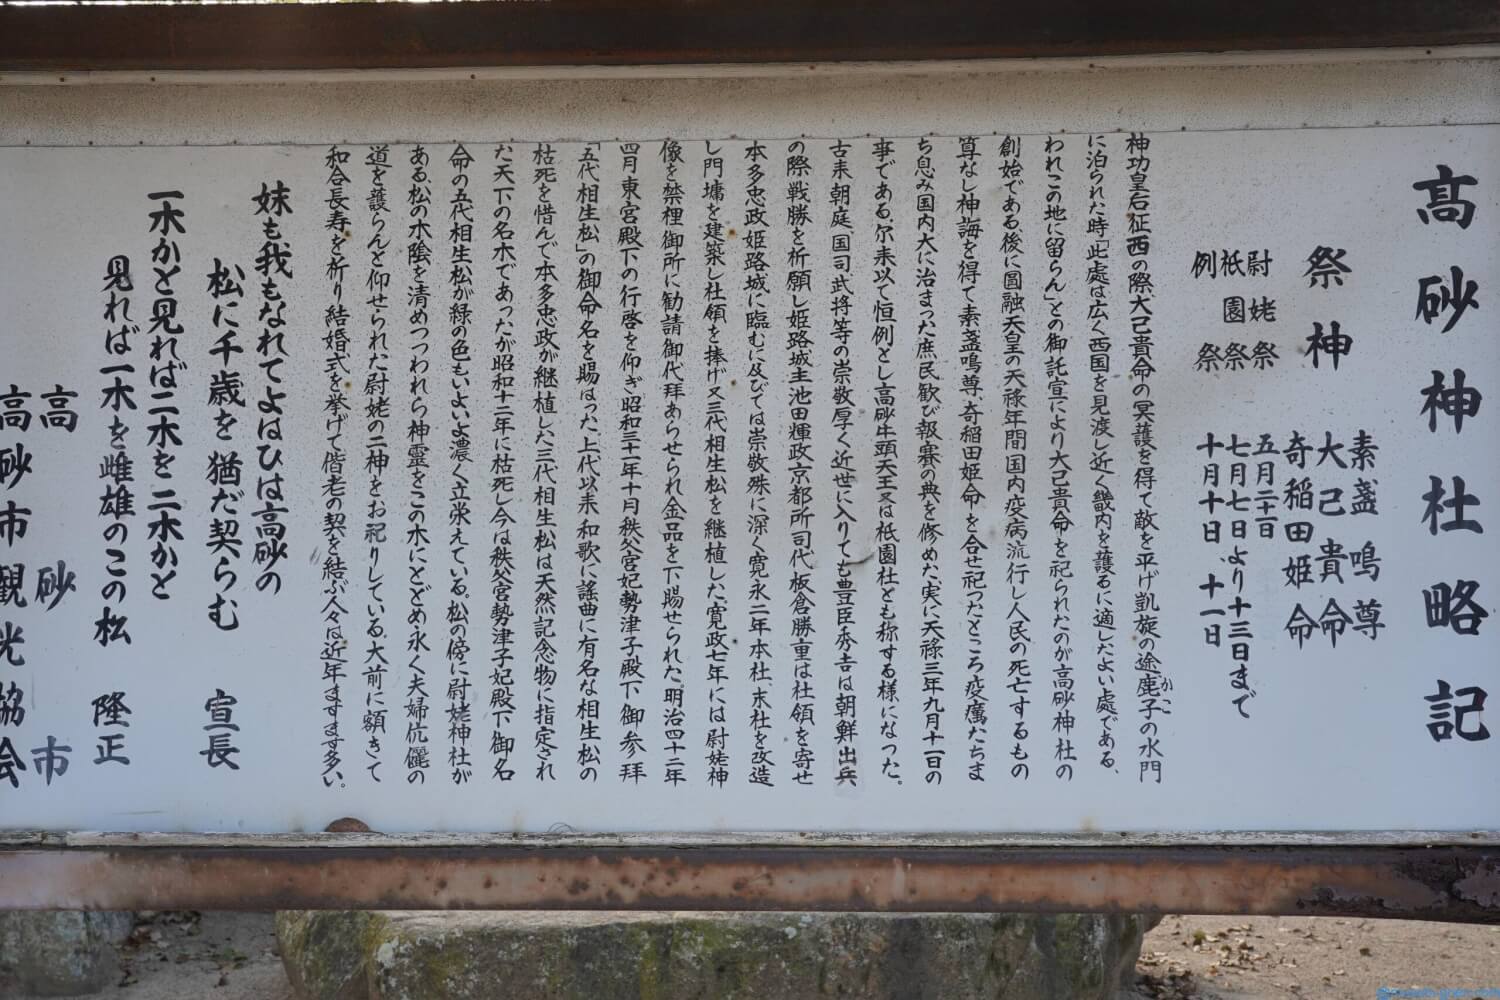 高砂神社略記
祭神
素盞鳴尊
大己貴命
奇稲田姫命
尉姥祭 五月二十一日
祇園祭 七月七日より十三日まで
例祭 十月十日 十一日
神功皇后征西の際、大己貴命の冥護を得て敵を平げ凱旋の途鹿子の水門
かこ
に泊られた時「此處は広く西国を見渡し近く畿内を護るに適したよい處である、
われこの地に留らん」との御託宣により大己貴命を祀られたのが高砂神社の
創始である、後に圓融天皇の天祿年間国内疫病流行し人民の死亡するもの
算なし神誨を得て素盞鳴尊、奇稲田姫命を合せ祀つたところ疫癘たちま
ち息み国内大に治まつた庶民歓び報賽の典を修めた、実に天祿三年九月十一日の
事である、尓来以て恒例とし高砂牛頭天王又は祇園社とも称する様になつた。
古来朝庭、国司武将等の崇敬厚く近世に入りても豊臣秀吉は朝鮮出兵
の際戦勝を祈願し姫路城主池田輝政京都所司代板倉勝重は社領を寄せ
本多忠政姫路城に臨むに及びては崇敬殊に深く寛永二年本社、末社を改造
し門墉を建築し社領を捧げ又三代相生松を継植した、寛政七年には尉姥神
像を禁裡御所に勧請御代拜あらせられ金品を下賜せられた、明治四十二年
四月東宮殿下の行啓を仰ぎ昭和三十一年十月秩父宮妃勢津子殿下御参拜
「五代相生松」の御命名を賜はつた、上代以来和歌に謠曲に有名な相生松の
枯死を惜んで本多忠政が継植した三代相生松は天然記念物に指定され
た天下の名木であつたが昭和十二年に枯死し今は秩父宮勢津子妃殿下御名
命の五代相生松が緑の色もいよいよ濃く立栄えている。松の傍に尉姥神社が
ある、松の木陰を清めつつわれら神霊をこの木にとどめ永く夫婦伉儷の
道を護らんを仰せられた尉姥の二神をお祀りしている、大前に額きて
和合長寿を祈り結婚式を挙げて偕老の契を結ぶ人々は近年ますます多い。
妹も我もなれてよはひは高砂の
松に千歳を猶だ契らむ 宣長
一木かと見れば二木を二木かと
見れば一木を雌雄のこの松 隆正
高砂市
高砂市観光協会